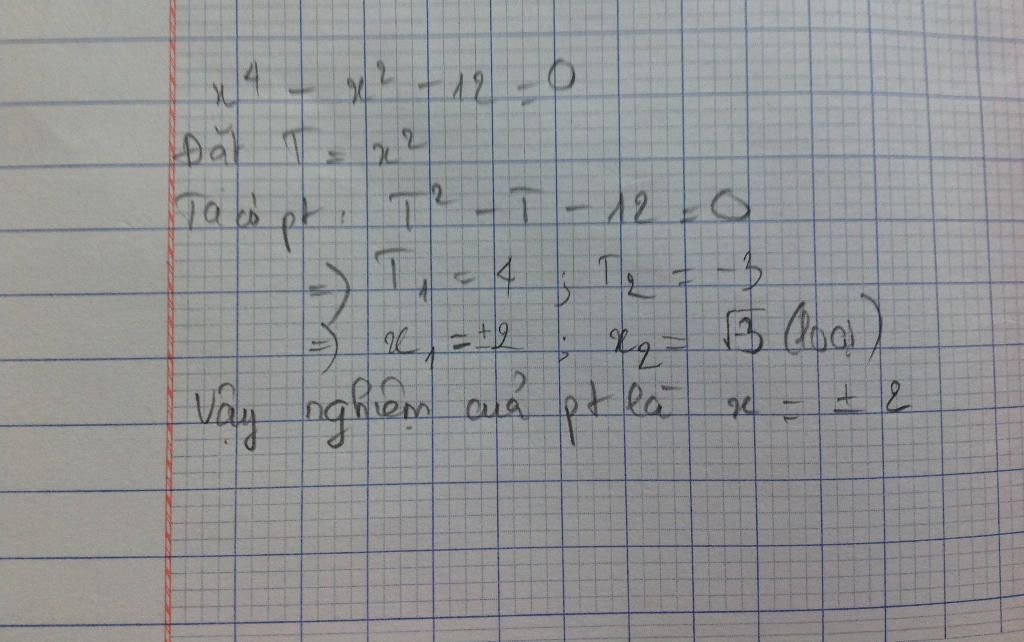 x⁴ - x² - 12 = 0
Đặt T = x²
Ta có pt : T² - T - 12 = 0
=> T₁ = 4 ; T₂ = -3
=> x₁ = ±2 ; x₂ = √-3 (loại)
Vậy nghiệm của pt là x = ± 2